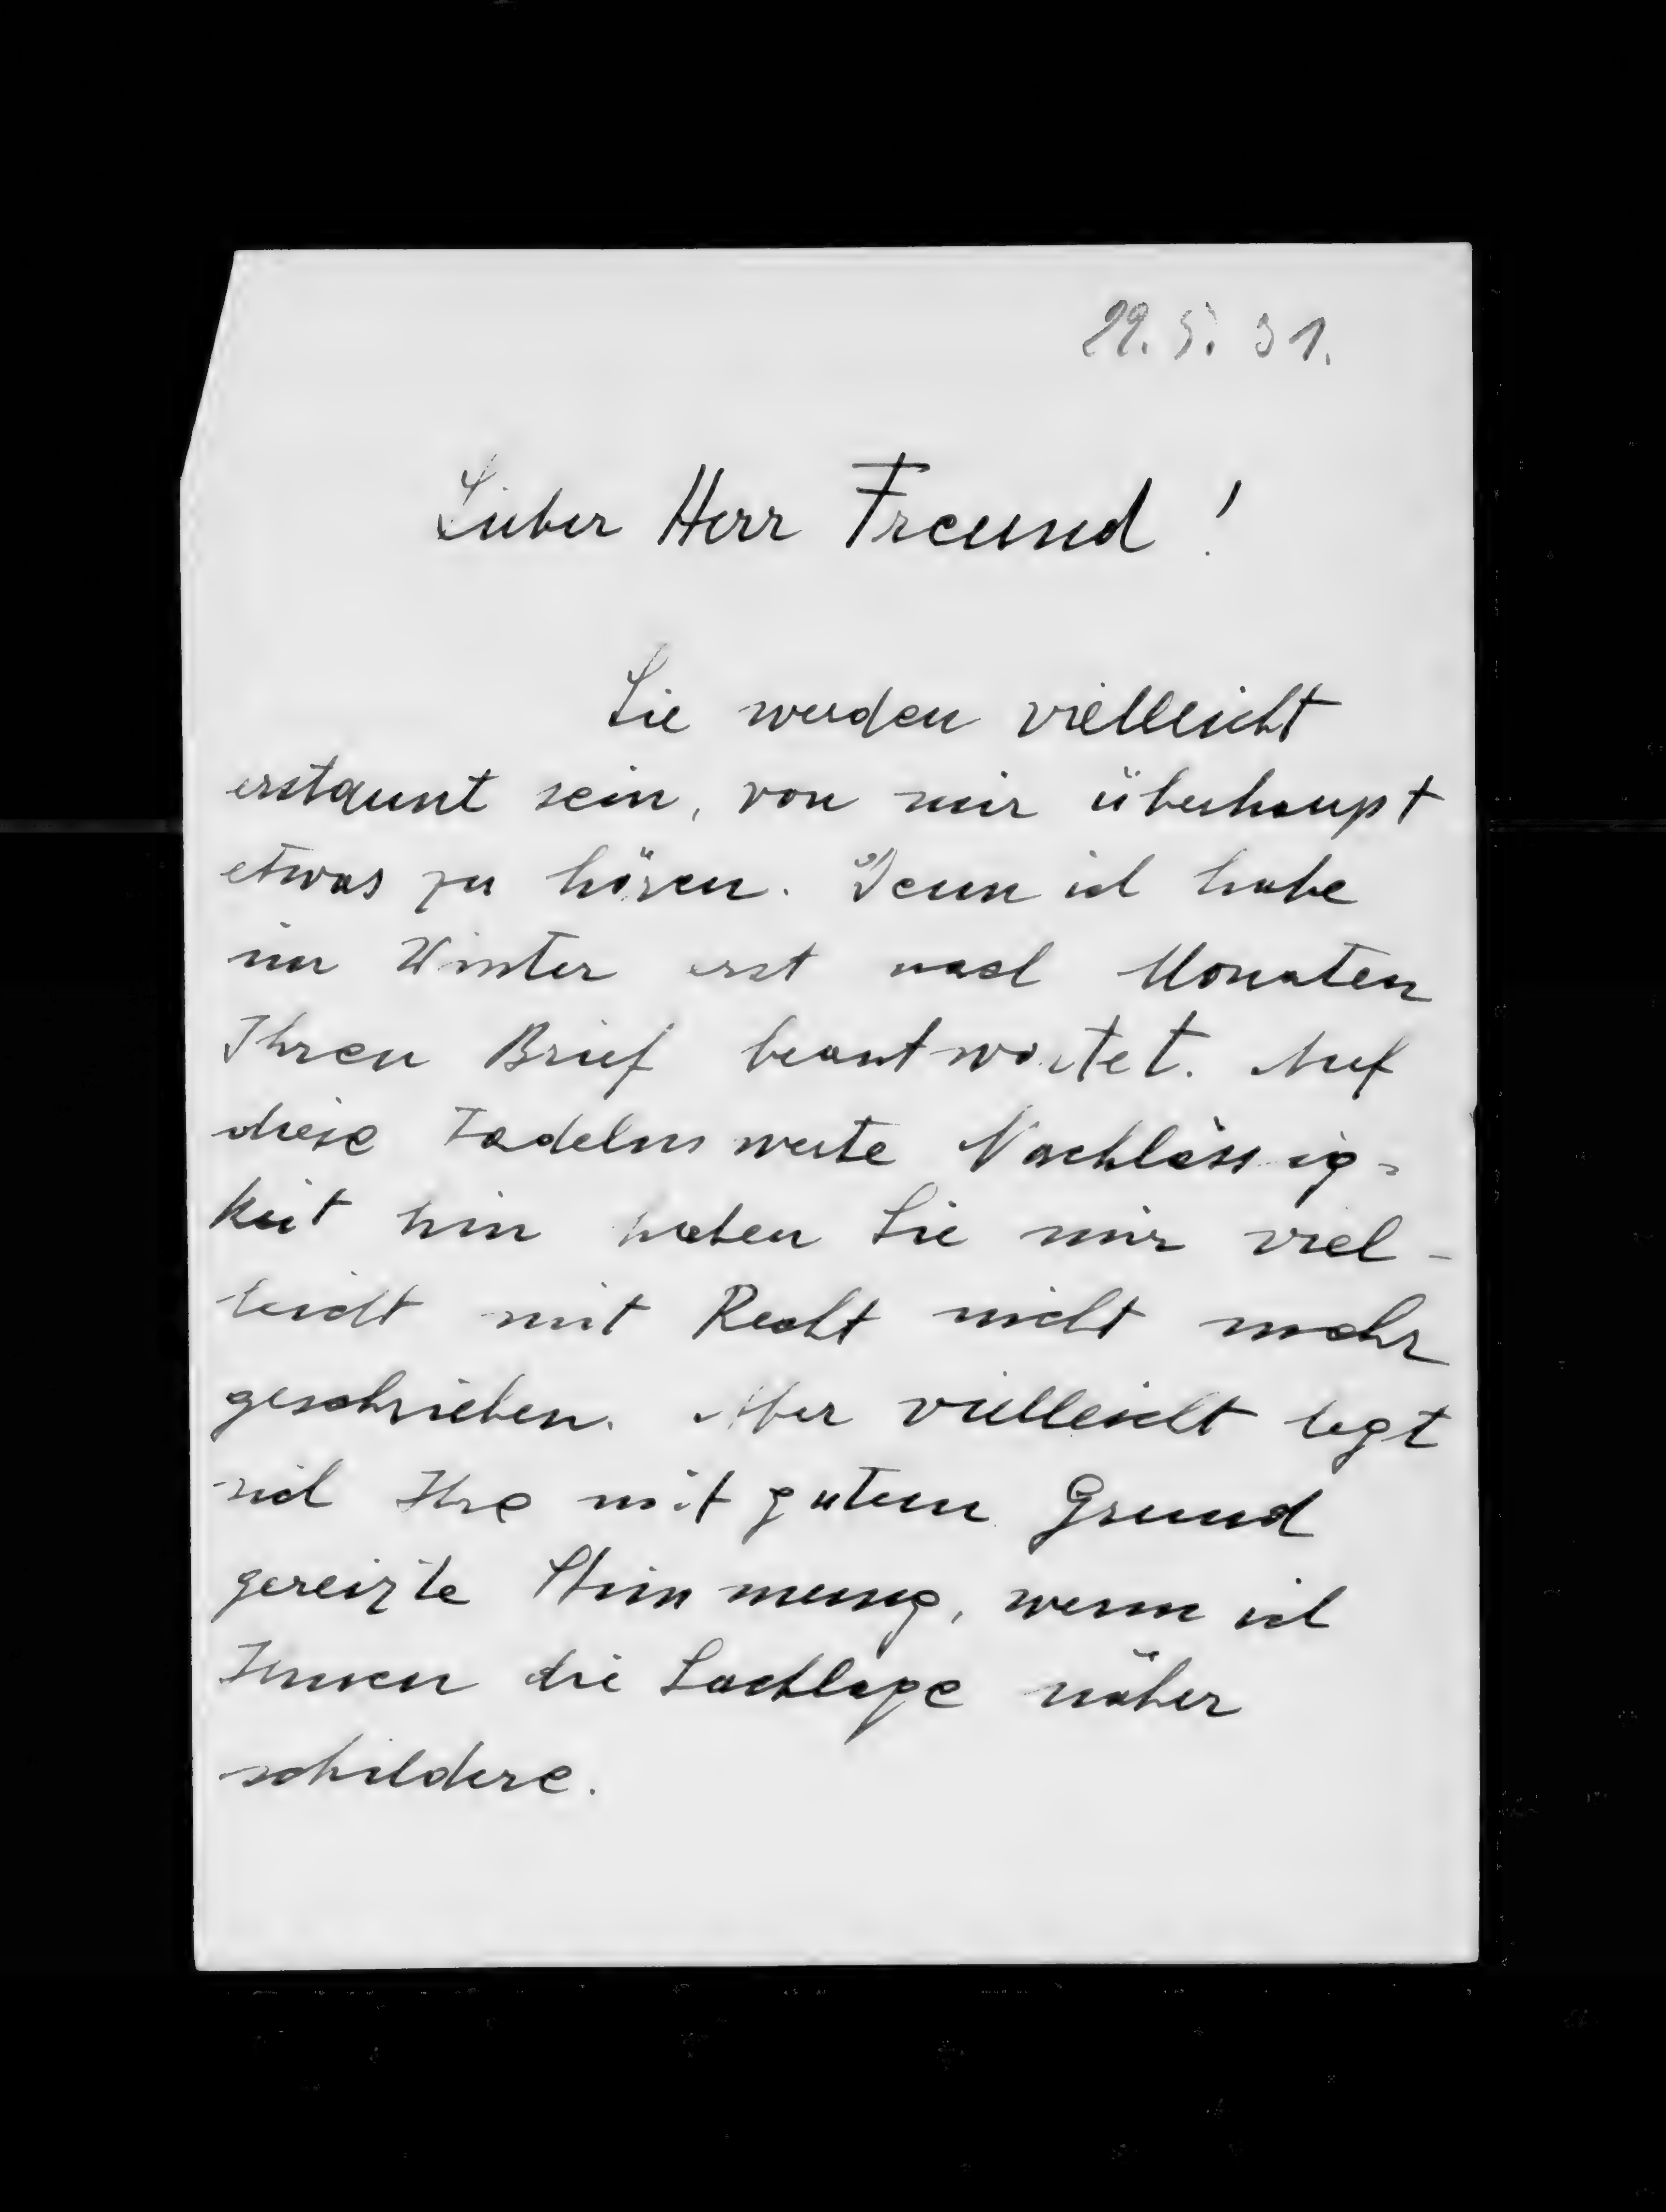 29.5.31.
Lieber Herr Freund!
Sie werden vielleicht
erstaunt sein, von mir überhaupt
etwas zu hören. Denn ich habe
im Winter erst nach Monaten
Ihren Brief beantwortet. Auf
diese tadelnswerte Nachlässig-
keit hin haben Sie mir viel-
leicht mit Recht nicht mehr
geschrieben. Aber vielleicht legt
sich Ihre mit gutem Grund
gereizte Stimmung, wenn ich
Ihnen die Sachlage näher
schildere.